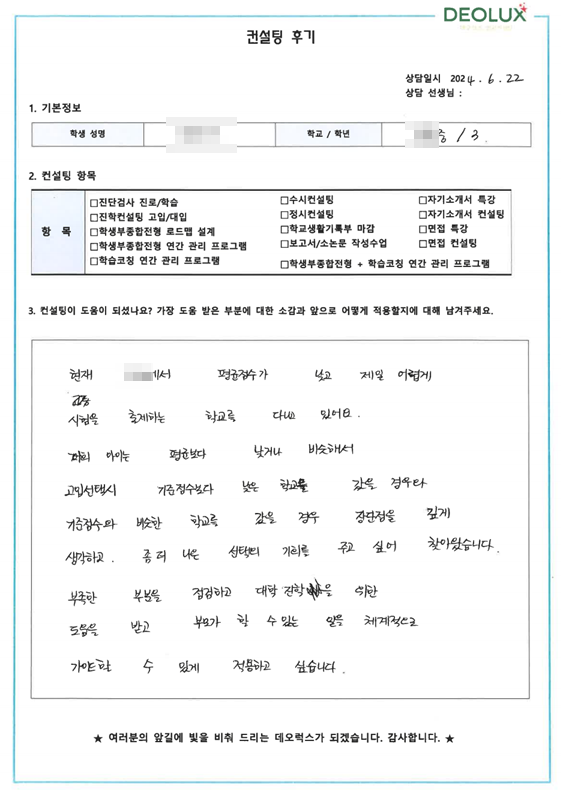 DEOLUX
컨설팅 후기
상담일시 2024. 6. 22
상담 선생님 :
1. 기본정보
학생 성명 학교 / 학년 중 / 3.
2. 컨설팅 항목
항 목
□진단검사 진로/학습 □수시컨설팅 □자기소개서 특강
□진학컨설팅 고입/대입 □정시컨설팅 □자기소개서 컨설팅
□학생부종합전형 로드맵 설계 □학교생활기록부 마감 □면접 특강
□학생부종합전형 연간 관리 프로그램 □보고서/소논문 작성수업 □면접 컨설팅
□학습코칭 연간 관리 프로그램 □학생부종합전형 + 학습코칭 연간 관리 프로그램
3. 컨설팅이 도움이 되셨나요? 가장 도움 받은 부분에 대한 소감과 앞으로 어떻게 적용할지에 대해 남겨주세요.
현재 에서 평균점수가 낮고 제일 어렵게
시험을 출제하는 학교를 다니고 있어요.
저희 아이는 평균보다 낮거나 비슷해서
고입선택시 기준점수보다 낮은 학교를 갔을 경우와
기준점수와 비슷한 학교를 갔을 경우 장단점을 깊게
생각하고. 좀 더 나은 선택의 기회를 주고 싶어 찾아왔습니다.
부족한 부분을 점검하고 대학 진학을 위한
도움을 받고 부모가 할 수 있는 일을 체계적으로
가야할 수 있게 적용하고 싶습니다.
★ 여러분의 앞길에 빛을 비춰 드리는 데오럭스가 되겠습니다. 감사합니다. ★